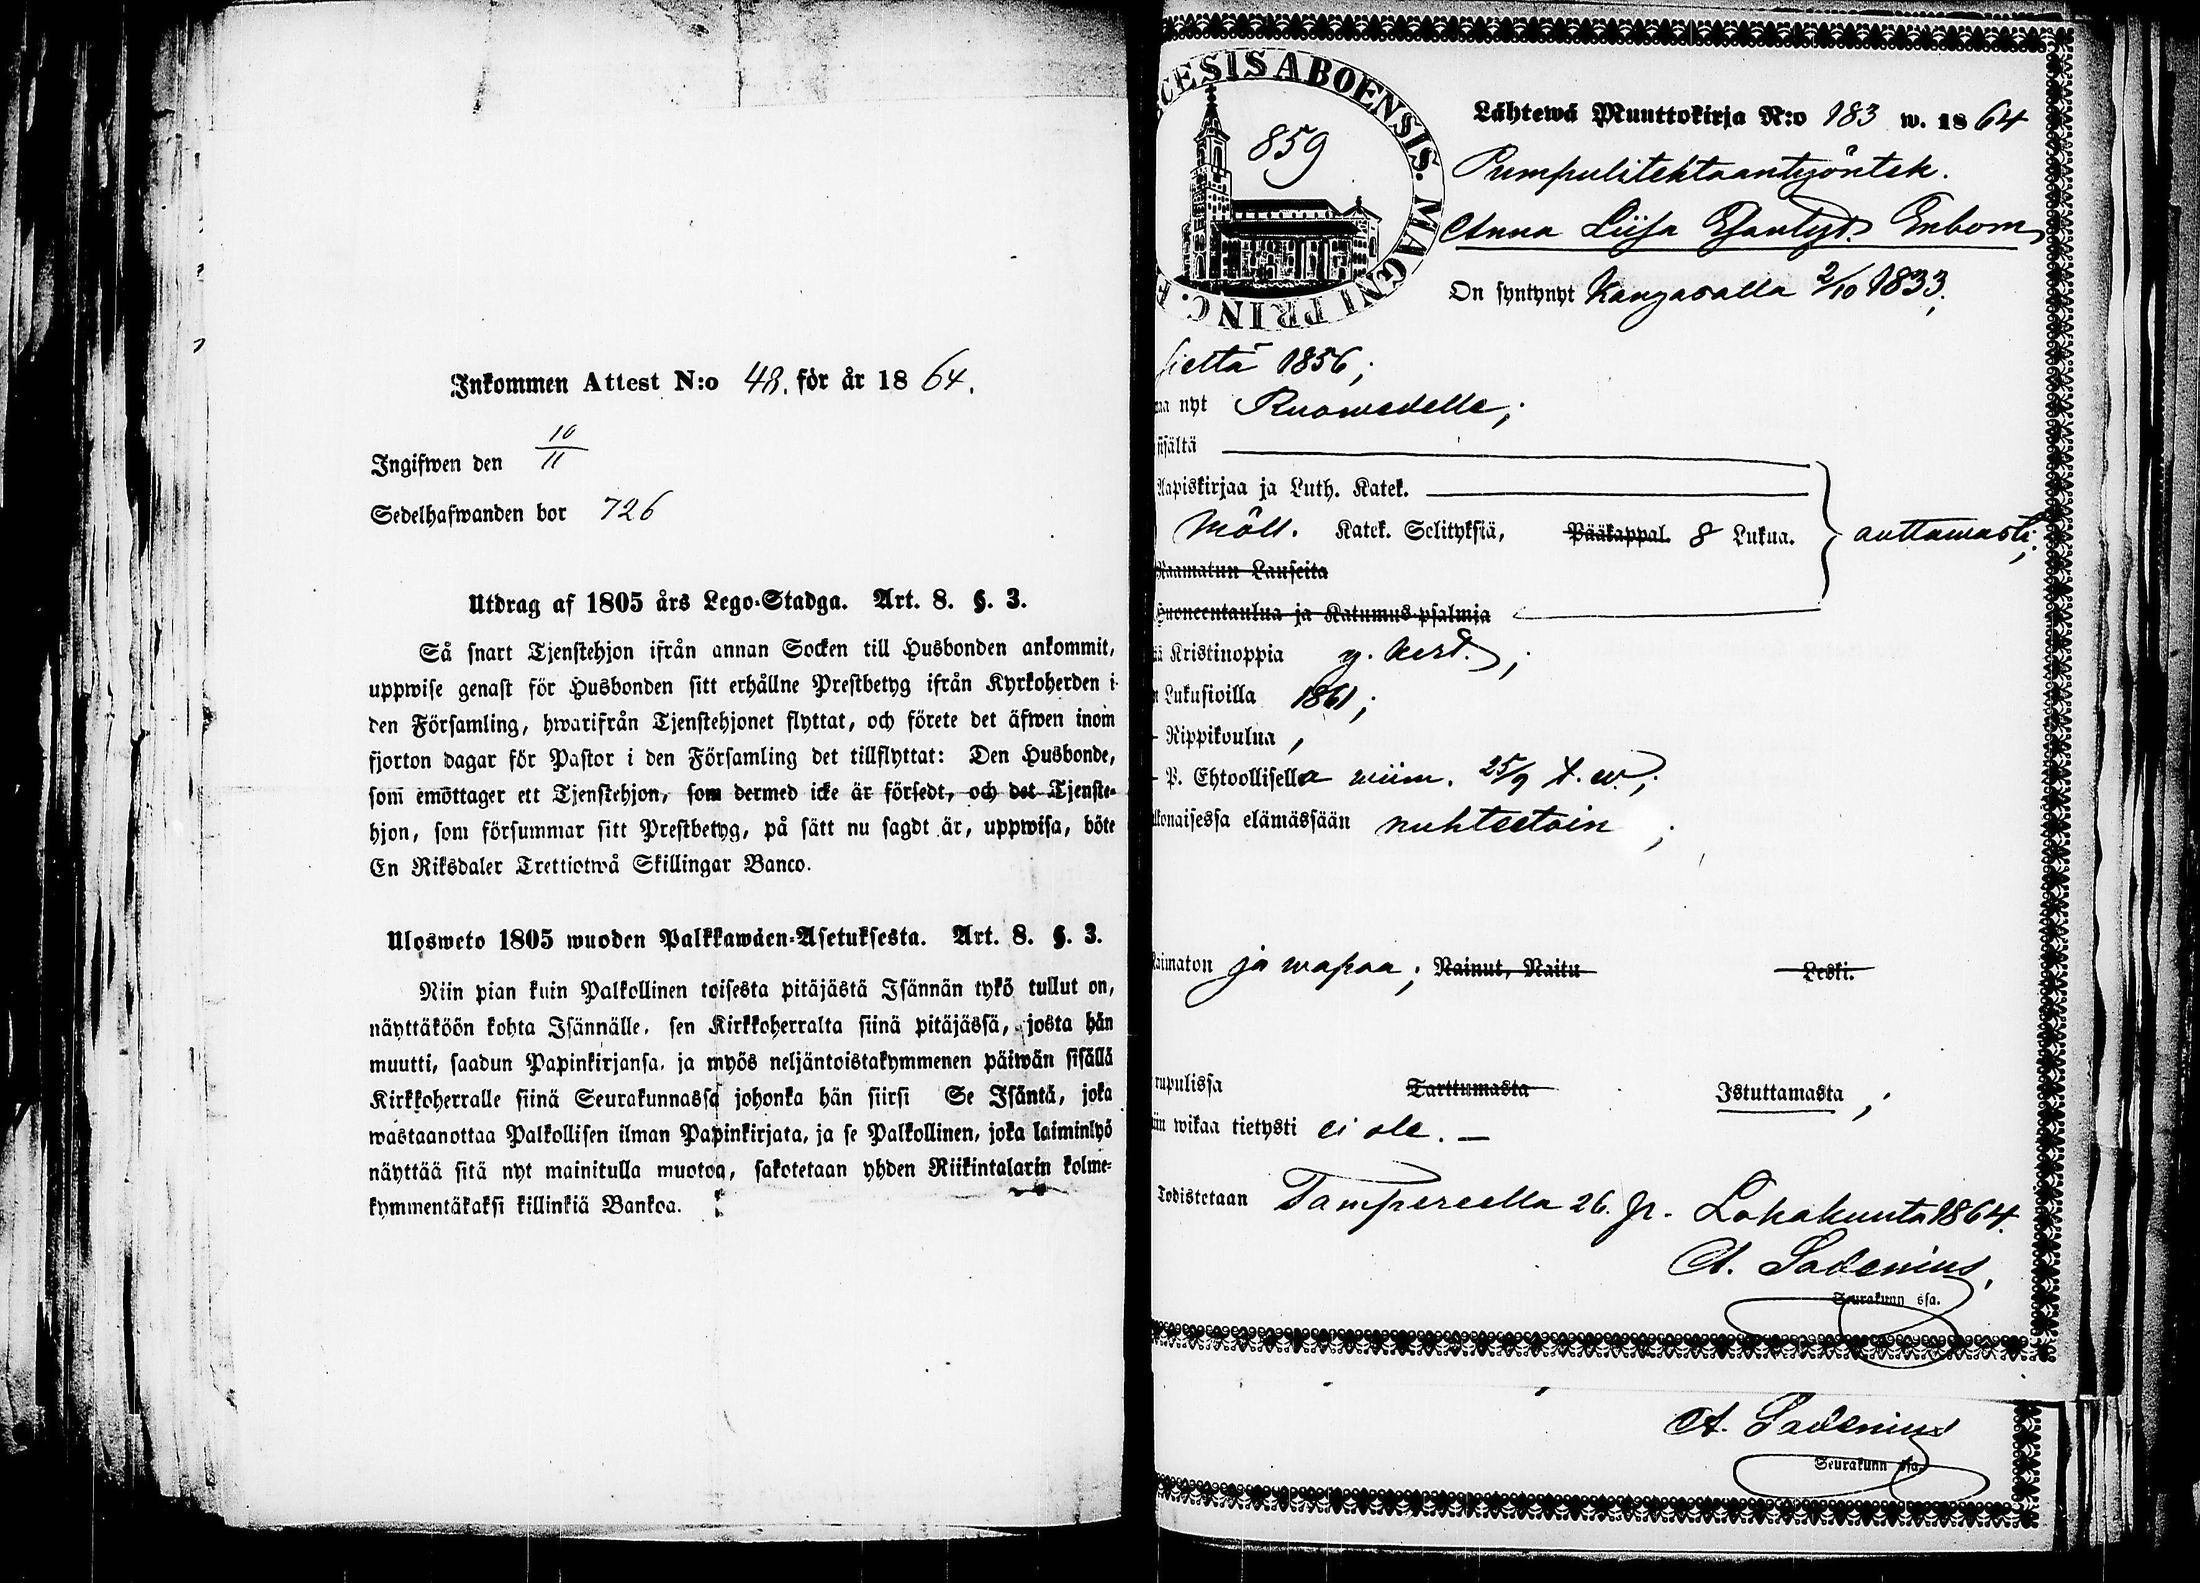 Inkommen Attest N:o 48. för år 1864.
Ingifwen den 10/11
Sedelhafwanden bor 726
Utdrag af 1805 års Lego-Stadga. Art. 8. §. 3.
Så snart Tjenstehjon ifrån annan Socken till Husbonden ankommit,
uppwise genast för Husbonden sitt erhållne Prestbetyg ifrån Kyrkoherden i
den Församling, hwarifrån Tjenstehjonet flyttat, och förete det äfwen inom
fjorton dagar för Pastor i den Församling det tillflyttat: Den Husbonde,
som emottager ett Tjenstehjon, som dermed icke är försedt, och det Tjenste-
hjon, som försummar sitt Prestbetyg, på sätt nu sagdt är, uppwisa, böte
En Riksdaler Trettiotwå Skillingar Banco.
Ulosweto 1805 wuoden Palkkawäen-Asetuksesta. Art. 8. §. 3.
Niin pian kuin Palkollinen toisesta pitäjästä Isännän tykö tullut on,
näyttäköön kohta Isännälle, sen Kirkkoherralta siinä pitäjässä, josta hän
muutti, saadun Papinkirjansa, ja myös neljäntoistakymmenen päiwän sisällä
Kirkkoherralle siinä Seurakunnassa johonka hän siirsi Se Isäntä, joka
wastaanottaa Palkollisen ilman Papinkirjata, ja se Palkollinen, joka laiminlyö
näyttää sitä nyt mainitulla muotoa, sakotetaan yhden Riikintalarin kolme-
kymmentäkaksi killinkiä Bankoa.
CESIS ABOENSIS. MAGNI PRINC. F
859
Lähtewä Muuttokirja N:o 183 w. 1864
Pumpulitehtaantyöntek.
Anna Liisa Enbom
On syntynyt Kangasalla 2/10 1833;
sieltä 1856;
nyt Ruowedelle;
sältä
Aapiskirjaa ja Luth. Katek.
Möll. Katek. Selityksiä, Pääkappal. 8 Lukua. auttawasti;
Raamatun Lauseita
Huoneentaulua ja Katumus-psalmia
Kristinoppia y. kert.;
Lukusioilla 1861;
Rippikoulua,
P. Ehtoollisella wiim. 25/9 t. w.;
elämässään nuhteetoin;
naimaton ja wapaa; Nainut, Naitu Leski.
rupulissa Tarttumasta Istuttamasta;
wikaa tietysti ei ole. —
Todistetaan Tampereella 26. p. Lokakuuta 1864.
A. Sadenius,
Seurakunn ssa.
A. Sadenius
Seurakunn ssa.